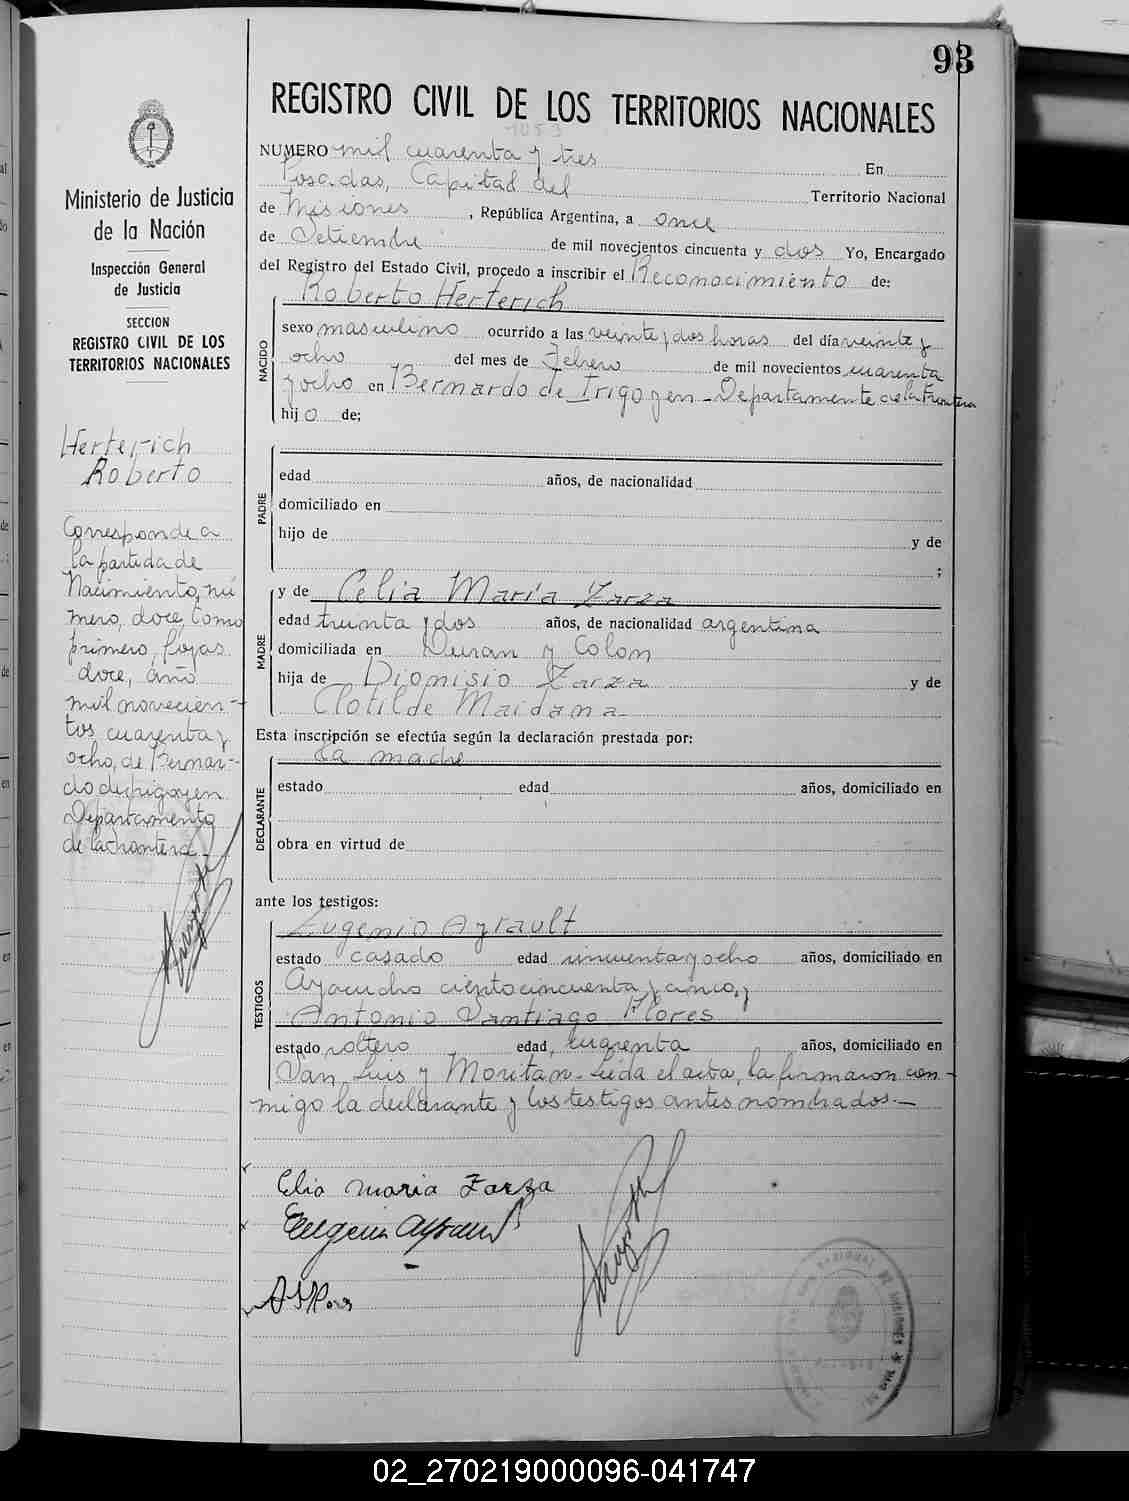 93
REGISTRO CIVIL DE LOS TERRITORIOS NACIONALES
1053
NUMERO mil cuarenta y tres En
Posadas, Capital del Territorio Nacional
de Misiones, República Argentina, a once
de Setiembre de mil novecientos cincuenta y dos Yo, Encargado
del Registro del Estado Civil, procedo a inscribir el Reconocimiento de:
Roberto Herterich
NACIDO
sexo masculino ocurrido a las veinte y dos horas del día veinte y
ocho del mes de Febrero de mil novecientos cuarenta
y ocho en Bernardo de Irigoyen - Departamento de la Frontera
hijo de;
PADRE
edad años, de nacionalidad
domiciliado en
hijo de y de
;
MADRE
y de Celia María Zarza
edad treinta y dos años, de nacionalidad argentina
domiciliada en Duran y Colon
hija de Dionisio Zarza y de
Clotilde Maidana
Esta inscripción se efectúa según la declaración prestada por:
La madre
DECLARANTE
estado edad años, domiciliado en
obra en virtud de
ante los testigos:
TESTIGOS
Eugenio Ayrault
estado casado edad cincuenta y ocho años, domiciliado en
Ayacucho ciento cincuenta y cinco, y
Antonio Santiago Flores
estado soltero edad, cuarenta años, domiciliado en
San Luis y Moritan - Leída el acta, la firmaron con-
migo la declarante y los testigos antes nombrados.-
Elia maria Zarza
Eugenio Ayrault
ASFlores
Ministerio de Justicia
de la Nación
Inspección General
de Justicia
SECCION
REGISTRO CIVIL DE LOS
TERRITORIOS NACIONALES
Herterich
Roberto
Corresponde a
la partida de
Nacimiento, nú
mero, doce, Tomo
primero, fojas
doce, año
mil novecien-
tos cuarenta y
ocho, de Bernar-
do de Irigoyen
Departamento
de la Frontera -
02_270219000096-041747